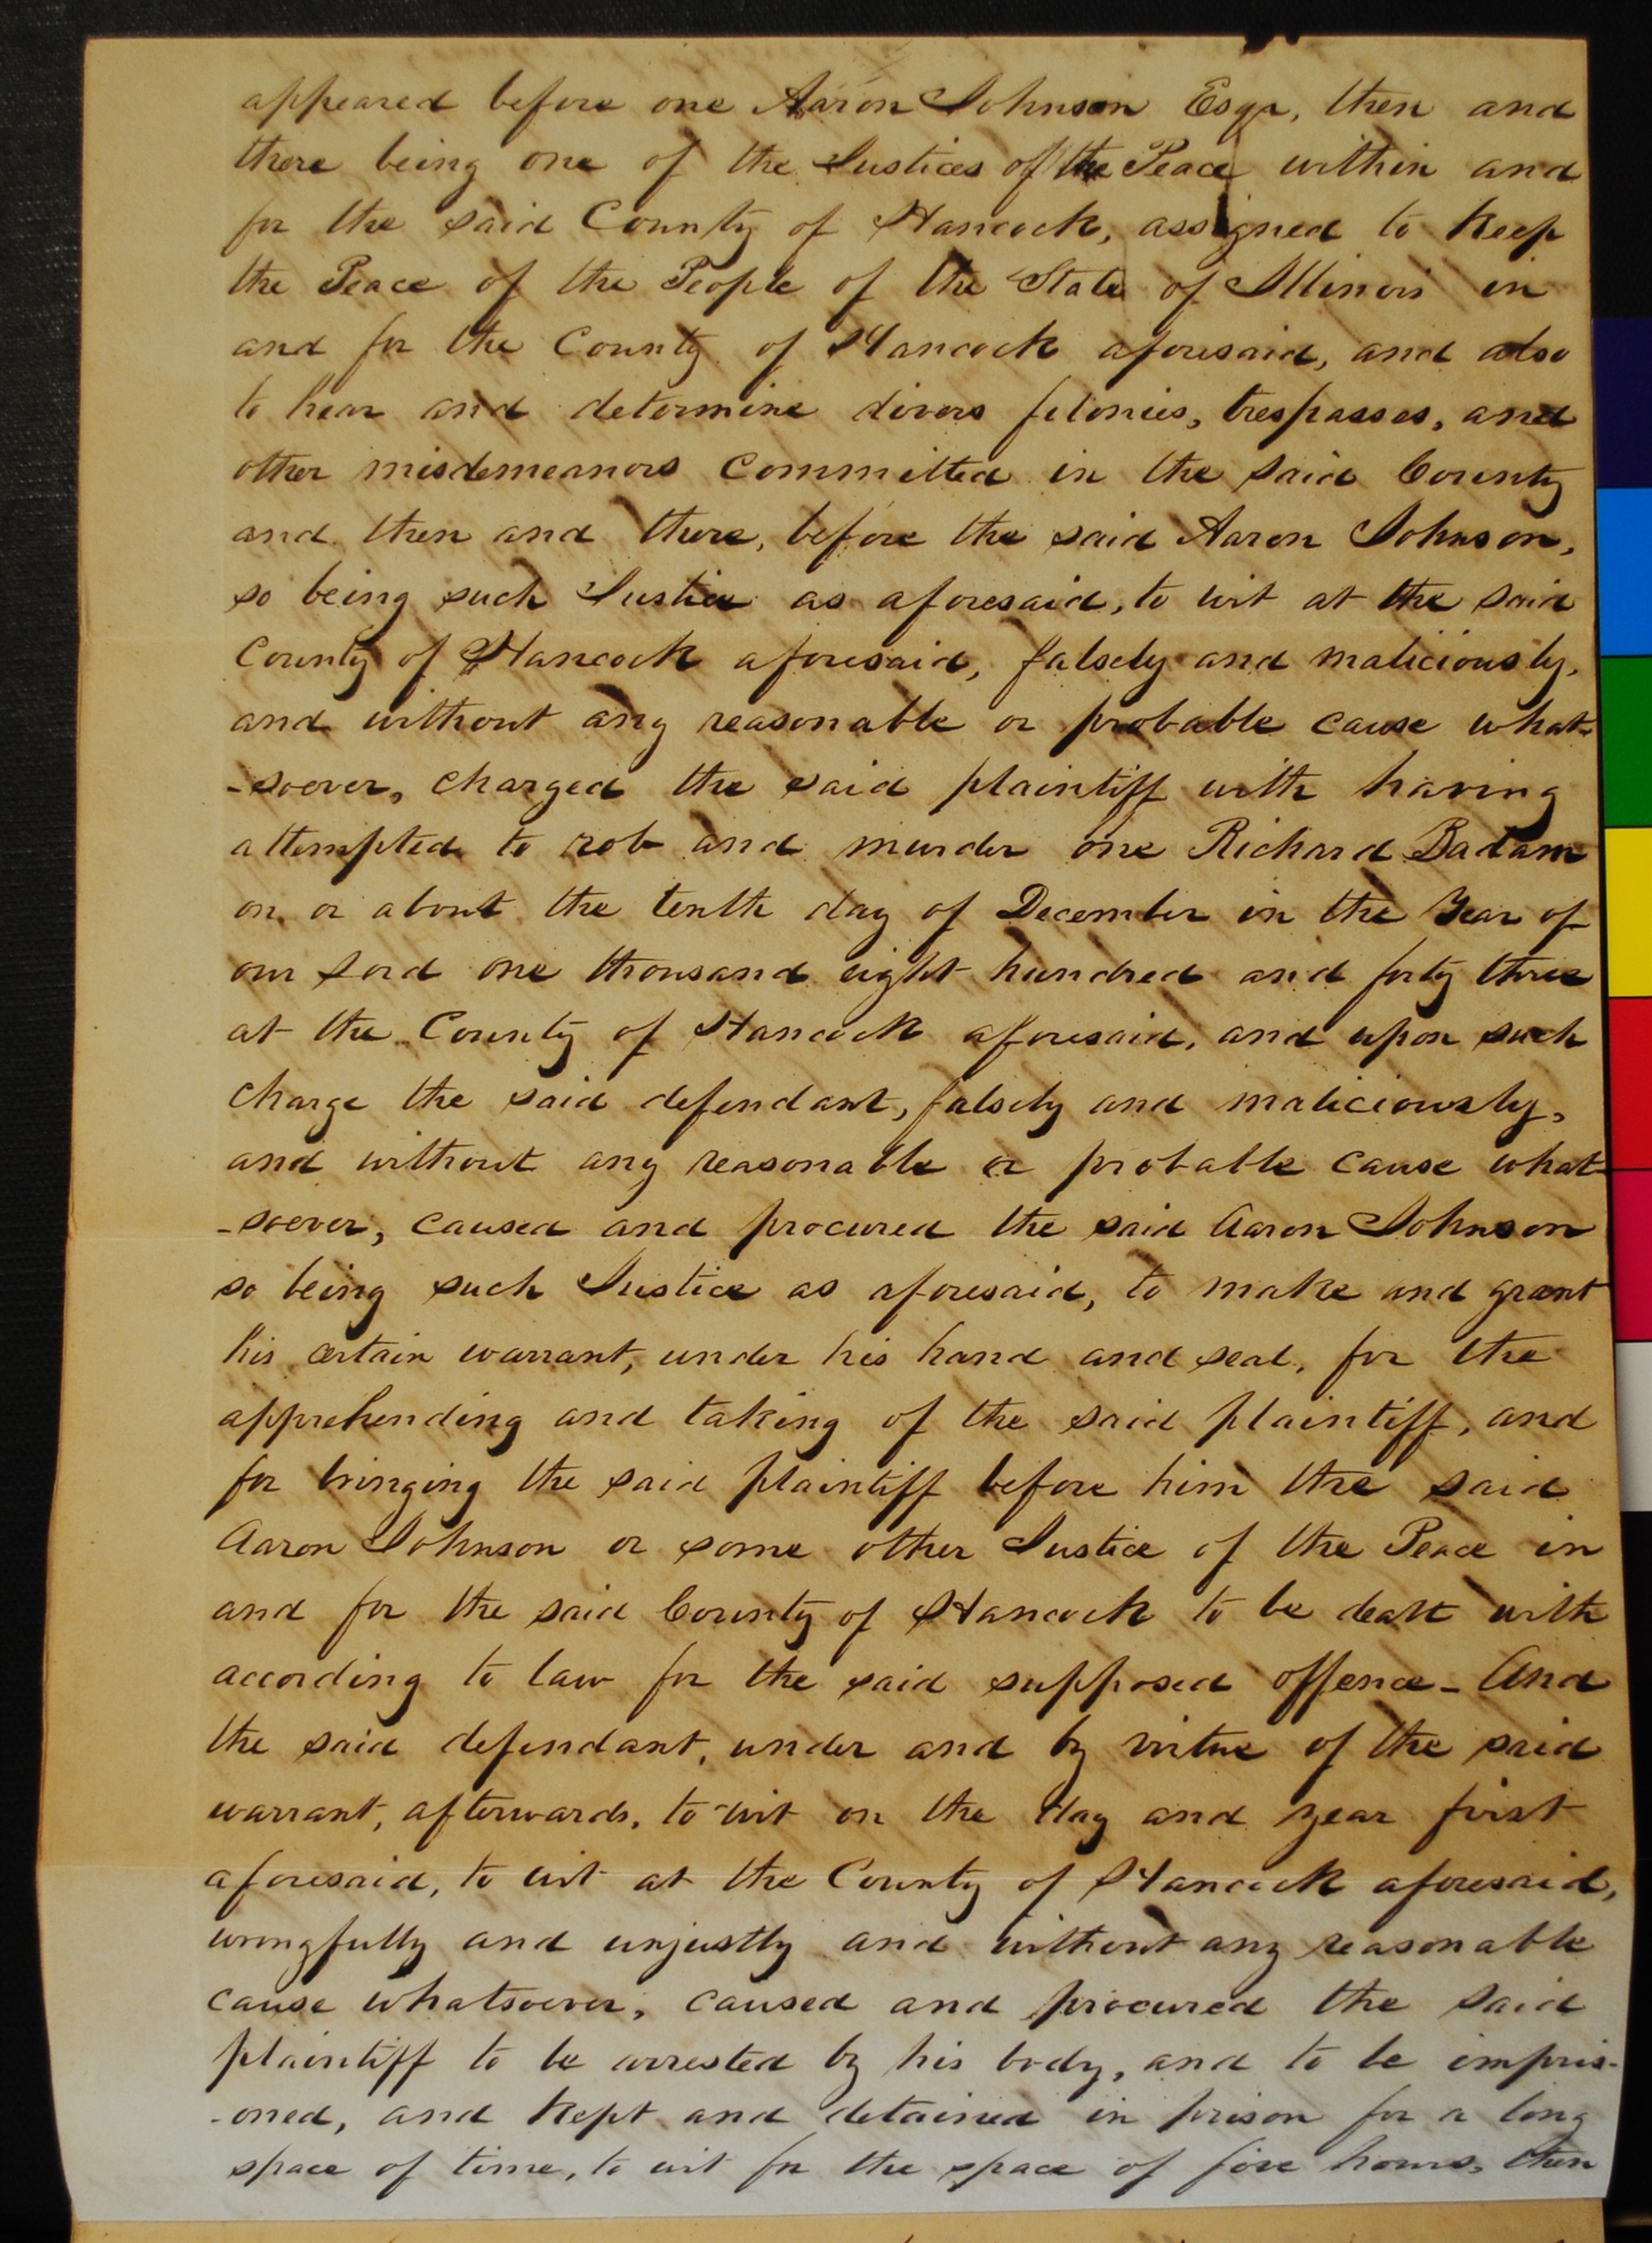 appeared before one Aaron Johnson Esqr, then and
there being one of the Justices of the Peace within and
for the said County of Hancock, assigned to keep
the Peace of the People of the State of Illinois in
and for the County of Hancock aforesaid, and also
to hear and determine divers felonies, trespasses, and
other misdemeanors committed in the said County
and then and there, before the said Aaron Johnson,
so being such Justice as aforesaid, to wit at the said
County of Hancock aforesaid, falsely and maliciously,
and without any reasonable or probable cause what-
-soever, charged the said plaintiff with having
attempted to rob and murder one Richard Badam
on or about the tenth day of December in the Year of
our Lord one thousand eight hundred and forty three
at the County of Hancock aforesaid, and upon such
charge the said defendant, falsely and maliciously,
and without any reasonable or probable cause what-
-soever, caused and procured the said Aaron Johnson
so being such Justice as aforesaid, to make and grant
his certain warrant, under his hand and seal, for the
apprehending and taking of the said plaintiff, and
for bringing the said plaintiff before him the said
Aaron Johnson or some other Justice of the Peace in
and for the said County of Hancock to be dealt with
according to law for the said supposed offence - And
the said defendant, under and by virtue of the said
warrant, afterwards, to wit on the day and year first
aforesaid, to wit at the County of Hancock aforesaid,
wrongfully and unjustly and without any reasonable
cause whatsoever, caused and procured the said
plaintiff to be arrested by his body, and to be impris-
-oned, and kept and detained in prison for a long
space of time, to wit for the space of five hours, then